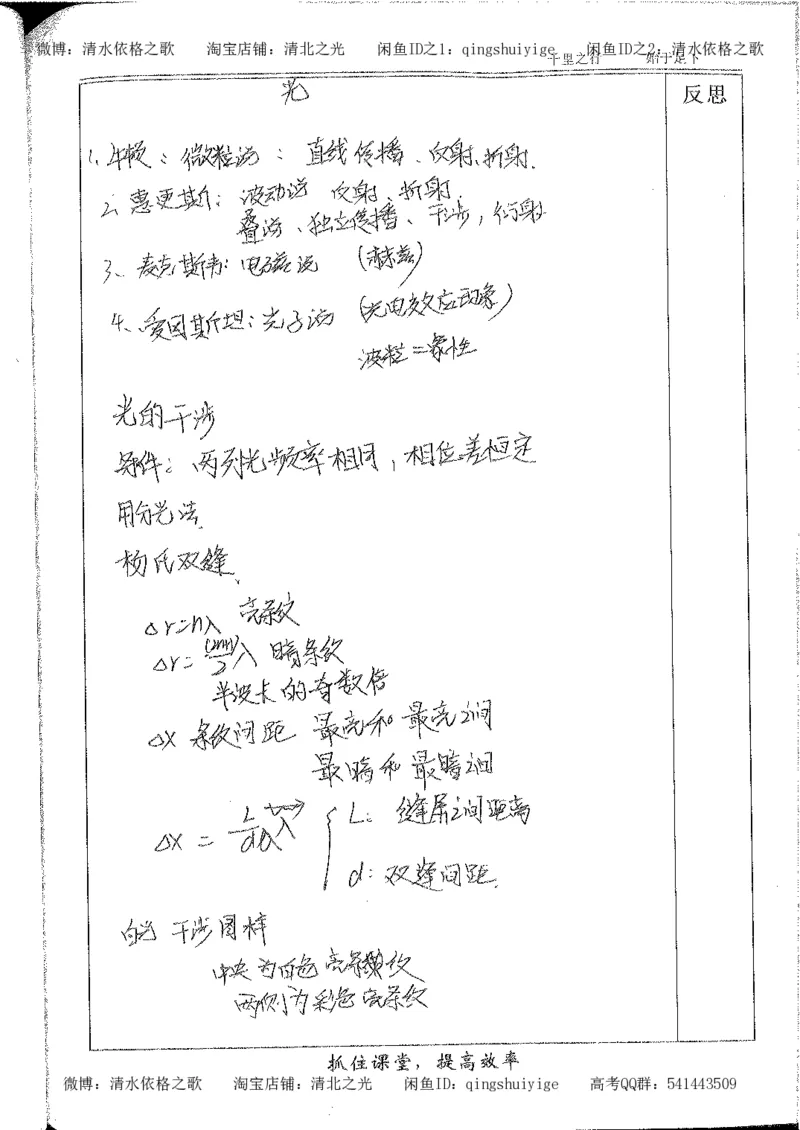 微博：清水依格之歌 淘宝店铺：清北之光 闲鱼ID之1：qingshuiyige 闲鱼ID之2：清水依格之歌
千里之行 始于足下
光
反思
1、牛顿：微粒说：直线传播、反射、折射.
2、惠更斯：波动说 反射、折射、
叠加、独立传播、干涉，衍射
3、麦克斯韦：电磁说（赫兹）
4、爱因斯坦：光子说（光电效应现象）
波粒二象性
光的干涉
条件：两列光频率相同，相位差恒定
用分光法.
杨氏双缝、
Δr=nλ 亮条纹
Δr=(2n+1)/2 λ 暗条纹
半波长的奇数倍
Δx 条纹间距 最亮和最亮之间
最暗和最暗之间
Δx = L/d λ { L：缝屏之间距离
d：双缝间距.
白光干涉图样
中央为白色亮条纹
两侧为彩色亮条纹
抓住课堂，提高效率
微博：清水依格之歌 淘宝店铺：清北之光 闲鱼ID：qingshuiyige 高考QQ群：541443509